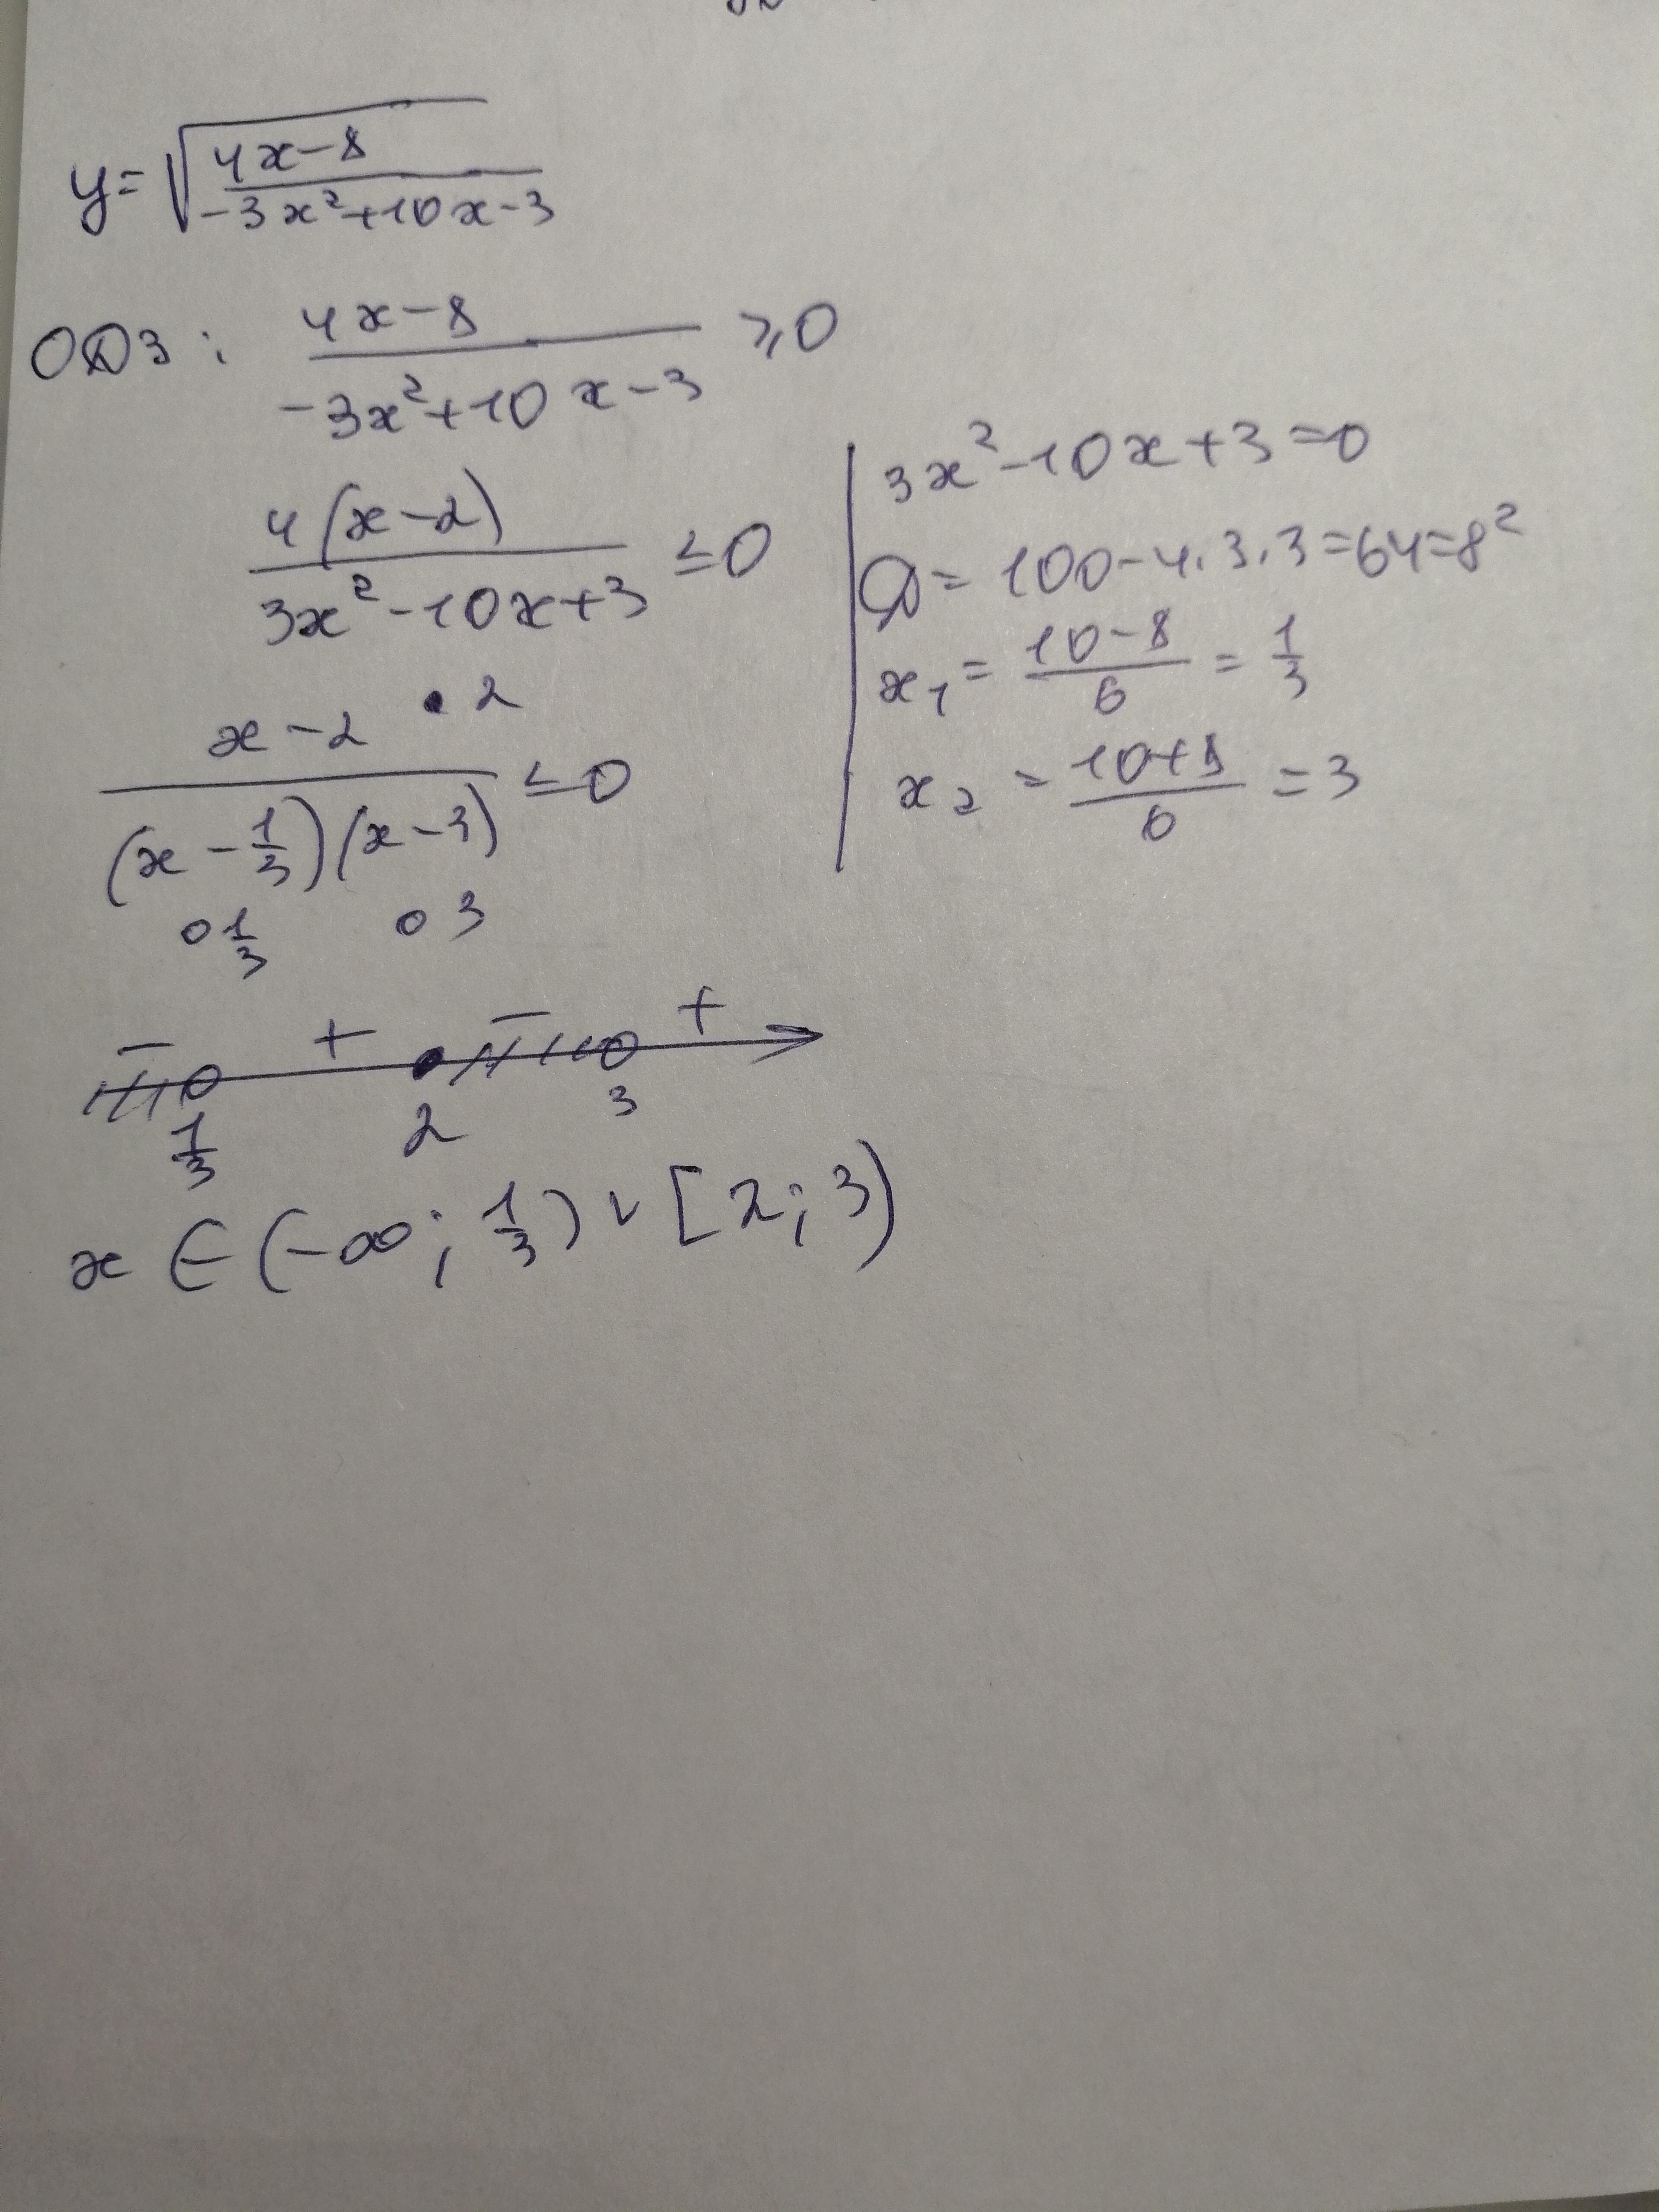 y = √((4x-8)/(-3x²+10x-3))
ОДЗ: (4x-8)/(-3x²+10x-3) ≥ 0
4(x-2)/(3x²-10x+3) ≤ 0
• 2
(x-2)/((x-1/3)(x-3)) ≤ 0
○ 1/3 ○ 3
3x²-10x+3=0
D = 100-4·3·3=64=8²
x₁ = (10-8)/6 = 1/3
x₂ = (10+8)/6 = 3
- + - +
1/3 2 3
x ∈ (-∞; 1/3) ∪ [2; 3)